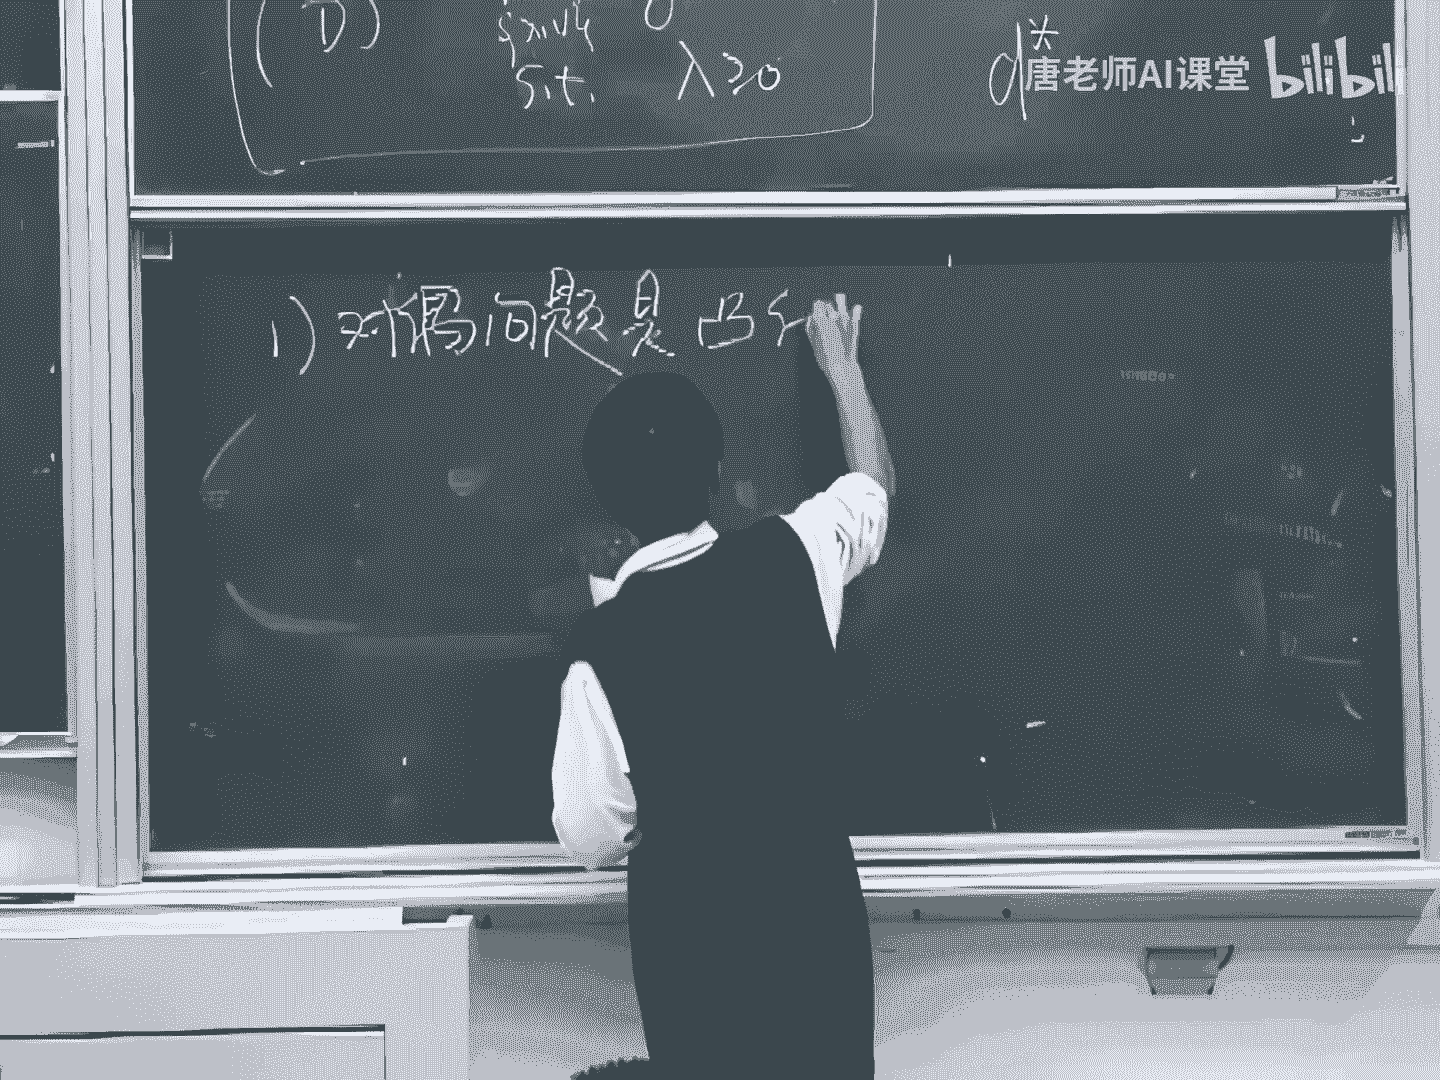 (D)
s.t. λ≥0
d*
唐老师AI课堂 bilibili
1) 对偶问题是凸